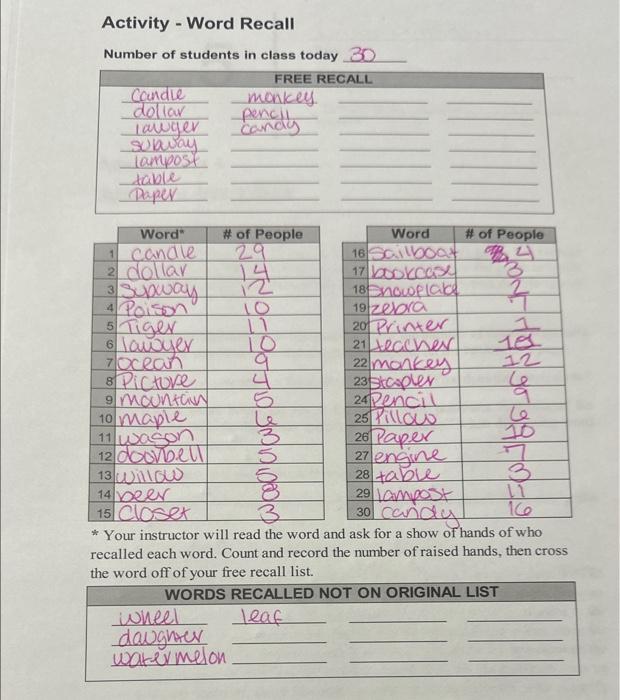 Activity - Word Recall
Number of students in class today 30
FREE RECALL
Candle monkey
dollar pencil
lawyer candy
subway
lampost
table
Paper
Word* # of People
1 candle 29
2 dollar 14
3 Subway 12
4 Poison 10
5 Tiger 11
6 lawyer 10
7 ocean 9
8 Picture 4
9 mountain 5
10 maple 6
11 wagon 3
12 doorbell 5
13 willow 5
14 beer 8
15 Closet 3
Word # of People
16 Sailboat 4
17 bookcase 3
18 2
19 zebra 7
20 Printer 1
21 teacher
22 monkey 12
23 stapler 6
24 Pencil 9
25 Pillow 6
26 Paper 10
27 engine 7
28 table 3
29 lampost 11
30 candy 16
* Your instructor will read the word and ask for a show of hands of who
recalled each word. Count and record the number of raised hands, then cross
the word off of your free recall list.
WORDS RECALLED NOT ON ORIGINAL LIST
wheel leaf
daughter
watermelon